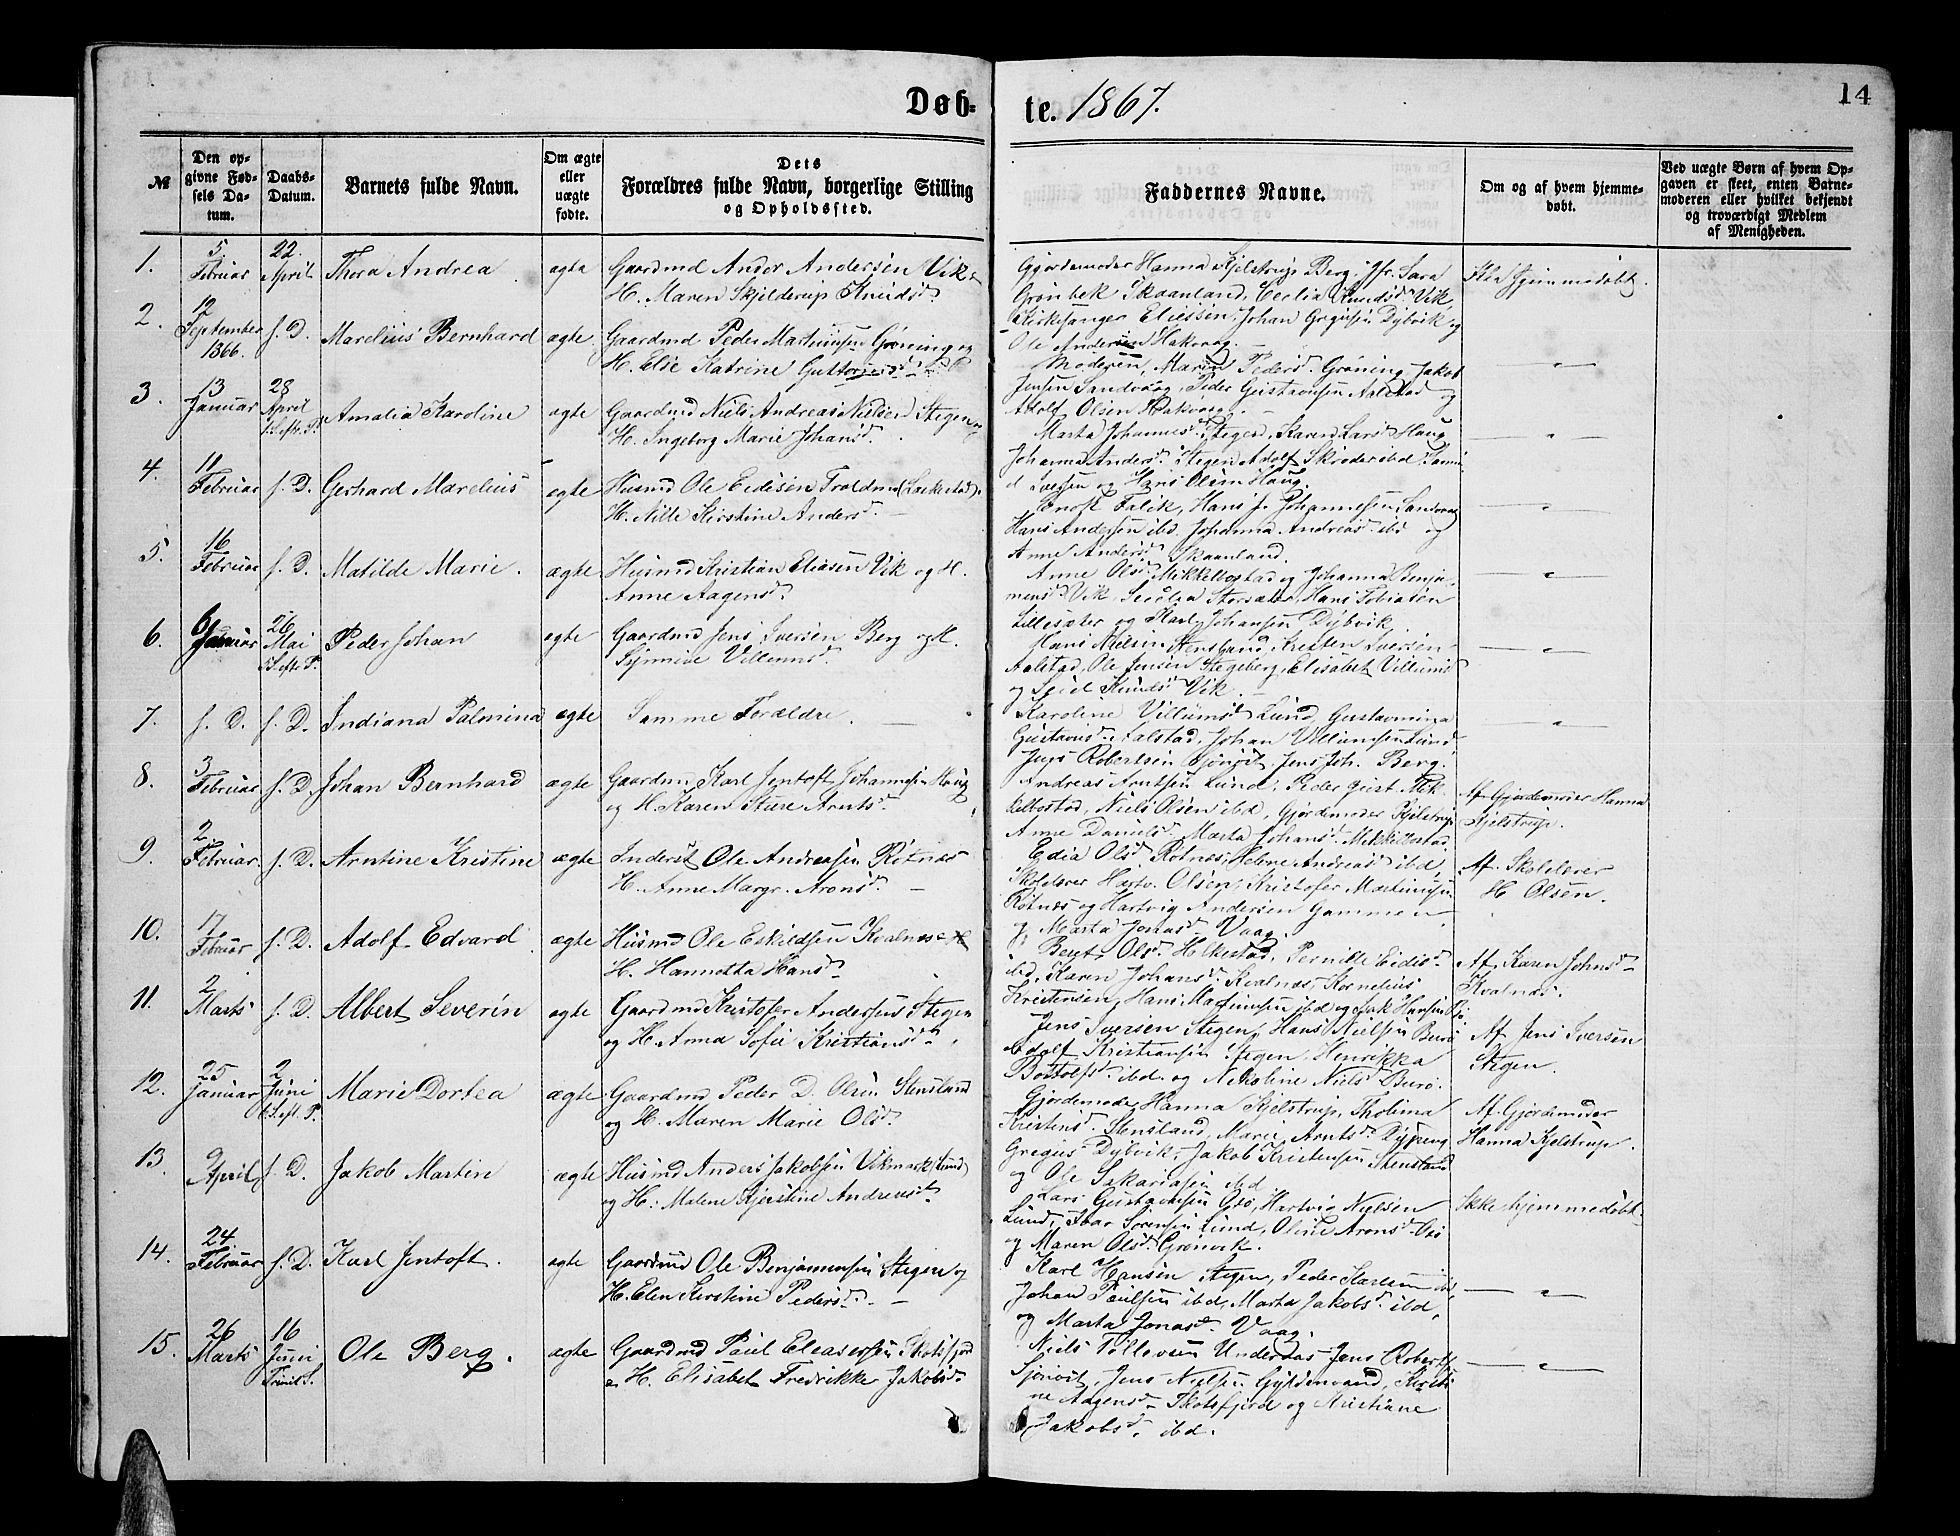 Døb-
te. 1867.
14
№
Den op-
givne Fød-
sels Da-
tum.
Daabs-
Datum.
Barnets fulde Navn.
Om ægte
eller
uægte
fødte.
Dets
Forældres fulde Navn, borgerlige Stilling
og Opholdssted.
Faddernes Navne.
Om og af hvem hjemme-
døbt.
Ved uægte Børn af hvem Op-
gaven er skeet, enten Barne-
moderen eller hvilket bekjendt
og troværdigt Medlem
af Menigheden.
1.
5
Februar
22.
April
Thora Andrea
ægte
Gaardmd Andor Andersen Vik
H. Maren Skjelderup Knudsd.
Gjordemoder Hanna Kjelstrup Berg, Jfr. Sara
Grønbek Skaanland, Cecilia Knudsd. Vik,
Kirkesanger Eliessen, Johan Gregusen Dybvik og
Ole Andersen Hakvaag.
Ikke hjemmedøbt.
2.
12
September
1866.
s. D.
Marelius Bernhard
ægte
Gaardmd Peder Martinusen Grøning og
H. Else Katrine Guttormsd.
Moderen, Maren Pedersd. Grøning, Jakob
Jensen Sandvaag, Peder Gustavsen Aalstad og
Adolf Olsen Hakvaag.
— " —
3.
13
Januar
28
April
1 S. eft. P.
Amalia Karoline
ægte
Gaardmd Niels Andreas Nielsen Stegen og
H. Ingeborg Marie Johansd.
Marta Johannesd. Stegen, Karen Larsd. Haug
Johanna Andersd. Stegen, Adolf Skrøder ibd,
Iversen og Hans Olsen Haug.
— " —
4.
11
Februar
s. D.
Gerhard Marelius
ægte
Husmd Ole Edisen Troldmd (Laskestad)
H. Nille Kirstine Andersd.
Ernst Falik, Hans J. Johannessen Sandvaag
Hans Andersen ibd. Johanna Andreasd. ibd og
Anne Andersd. Skaanland.
— " —
5.
16
Februar
s. D.
Matilde Marie.
ægte
Husmd Kristian Eliasen Vik og H.
Anne Aagensd.
Anne Olsd. Mikkelbostad og Johanna Benja-
minsd. Vik, Secilia Storsæter, Hans Tobiasen
Lillesæter og Karl Johansen Dybvik
— " —
6.
6
Januar
26
Mai
5 S. eft. P.
Peder Johan
ægte
Gaardmd Jens Iversen Berg og H.
Synnive Villumsd.
Hans Nielsen Stensland, Kristen Iversen
Aalstad, Ole Jensen Stegeberg, Elisabet Villumsd
og Seiel Knudsd. Vik.
— " —
7.
s. D.
s. D.
Indiana Palmina
ægte
Samme Forældre.
Karoline Villumsd. Lund, Gustavmina
Gustavsd. Aalstad, Johan Villumsen Lund
Jens Robertsen Sjønvik, Jens Joh. Berg.
— " —
8.
3
Februar
s. D.
Johan Bernhard
ægte
Gaardmd Karl Jentoft Johannesen Haug
og H. Karen Sture Arntsd.
Andreas Arntsen Lund, Peder Gust. Mik-
kelbostad, Niels Olsen ibd, Gjordemoder Kjelstrup
Anne Danielsd. Marta Johansd. Mikkelbostad.
Af Gjordemoder Hanna
Kjelstrup.
9.
2
Februar
s. D.
Arntine Kristine
ægte
Inderst Ole Andreasen Røtnæs
H. Anne Margr. Aronsd.
Edia Olsd. Røtnæs, Helene Andreasd. ibd,
Skolelærer Hartv. Olsen, Kristofer Martinusen
Røtnæs og Hartvig Andersen Gammen
og Marta Jonasd. Vaag.
Af Skolelærer
H Olsen.
10.
17
Februar
s. D.
Adolf Edvard
ægte
Husmd Ole Eskildsen Kvalnæs
H. Hannetta Hansd.
Berit Olsd. Helkestad, Pernille Eidisd.
ibd, Karen Johansd. Kvalnæs, Kornelius
Kristensen, Hans Martinusen ibd og Isak Hansen Bø
Af Karen Johnsd.
Kvalnæs.
11.
2
Marts
s. D.
Albert Severin
ægte
Gaardmd Kristofer Andersen Stegen
og H. Anna Sofie Kristiansd.
Jens Iversen Stegen, Hans Nielsen Burø
Adolf Kristiansen Stegen, Henrikka
Bostolfsd. ibd. og Nikoline Nielsd Burø.
Af Jens Iversen
Stegen.
12.
25
Januar
2
Juni
6 S. eft. P.
Marie Dortea
ægte
Gaardmd Peder D. Olsen Stensland
og H. Maren Marie Olsd.
Gjordemoder Hanna Kjelstrup, Tholina
Kristensd. Stensland, Marie Arntsd. Dypeng
Gregus Dybvik, Jakob Kristensen Stensland
og Ole Sakariasen ibd
Af Gjordemoder
Hanna Kjelstrup.
13.
9
April
s. D.
Jakob Martin
ægte
Husmd Anders Jakobsen Vikmark (Lund)
og H. Malene Kjerstine Andreasd.
Lars Gustavsen Osø, Hartvig Nielsen
Lund, Ivar Sørensen Lund, Oline Aronsd. Osø
og Maren Olsd. Grønvik.
Ikke hjemmedøbt
14.
24.
Februar
s. D.
Karl Jentoft.
ægte
Gaardmd Ole Benjaminsen Stegen og
H. Elen Kirstine Pedersd.
Karl Hansen Stegen, Peder Karlsen ibd,
Johan Paulsen ibd, Marta Jakobsd. ibd,
og Marta Jonasd. Vaag.
— " —
15.
26
Marts
16
Juni
Trinit. S.
Ole Berg.
ægte
Gaardmd Paul Eleasersen Skotsfjord
H. Elisabet Fredrikke Jakobsd.
Niels Tollevsen Underaas, Jens Roberts.
Sjønvik, Jens Nielsen Gyldenvand, Kirsti-
ne Aagensd. Skotsfjord og Kristiane
Jakobsd. ibd.
— " —